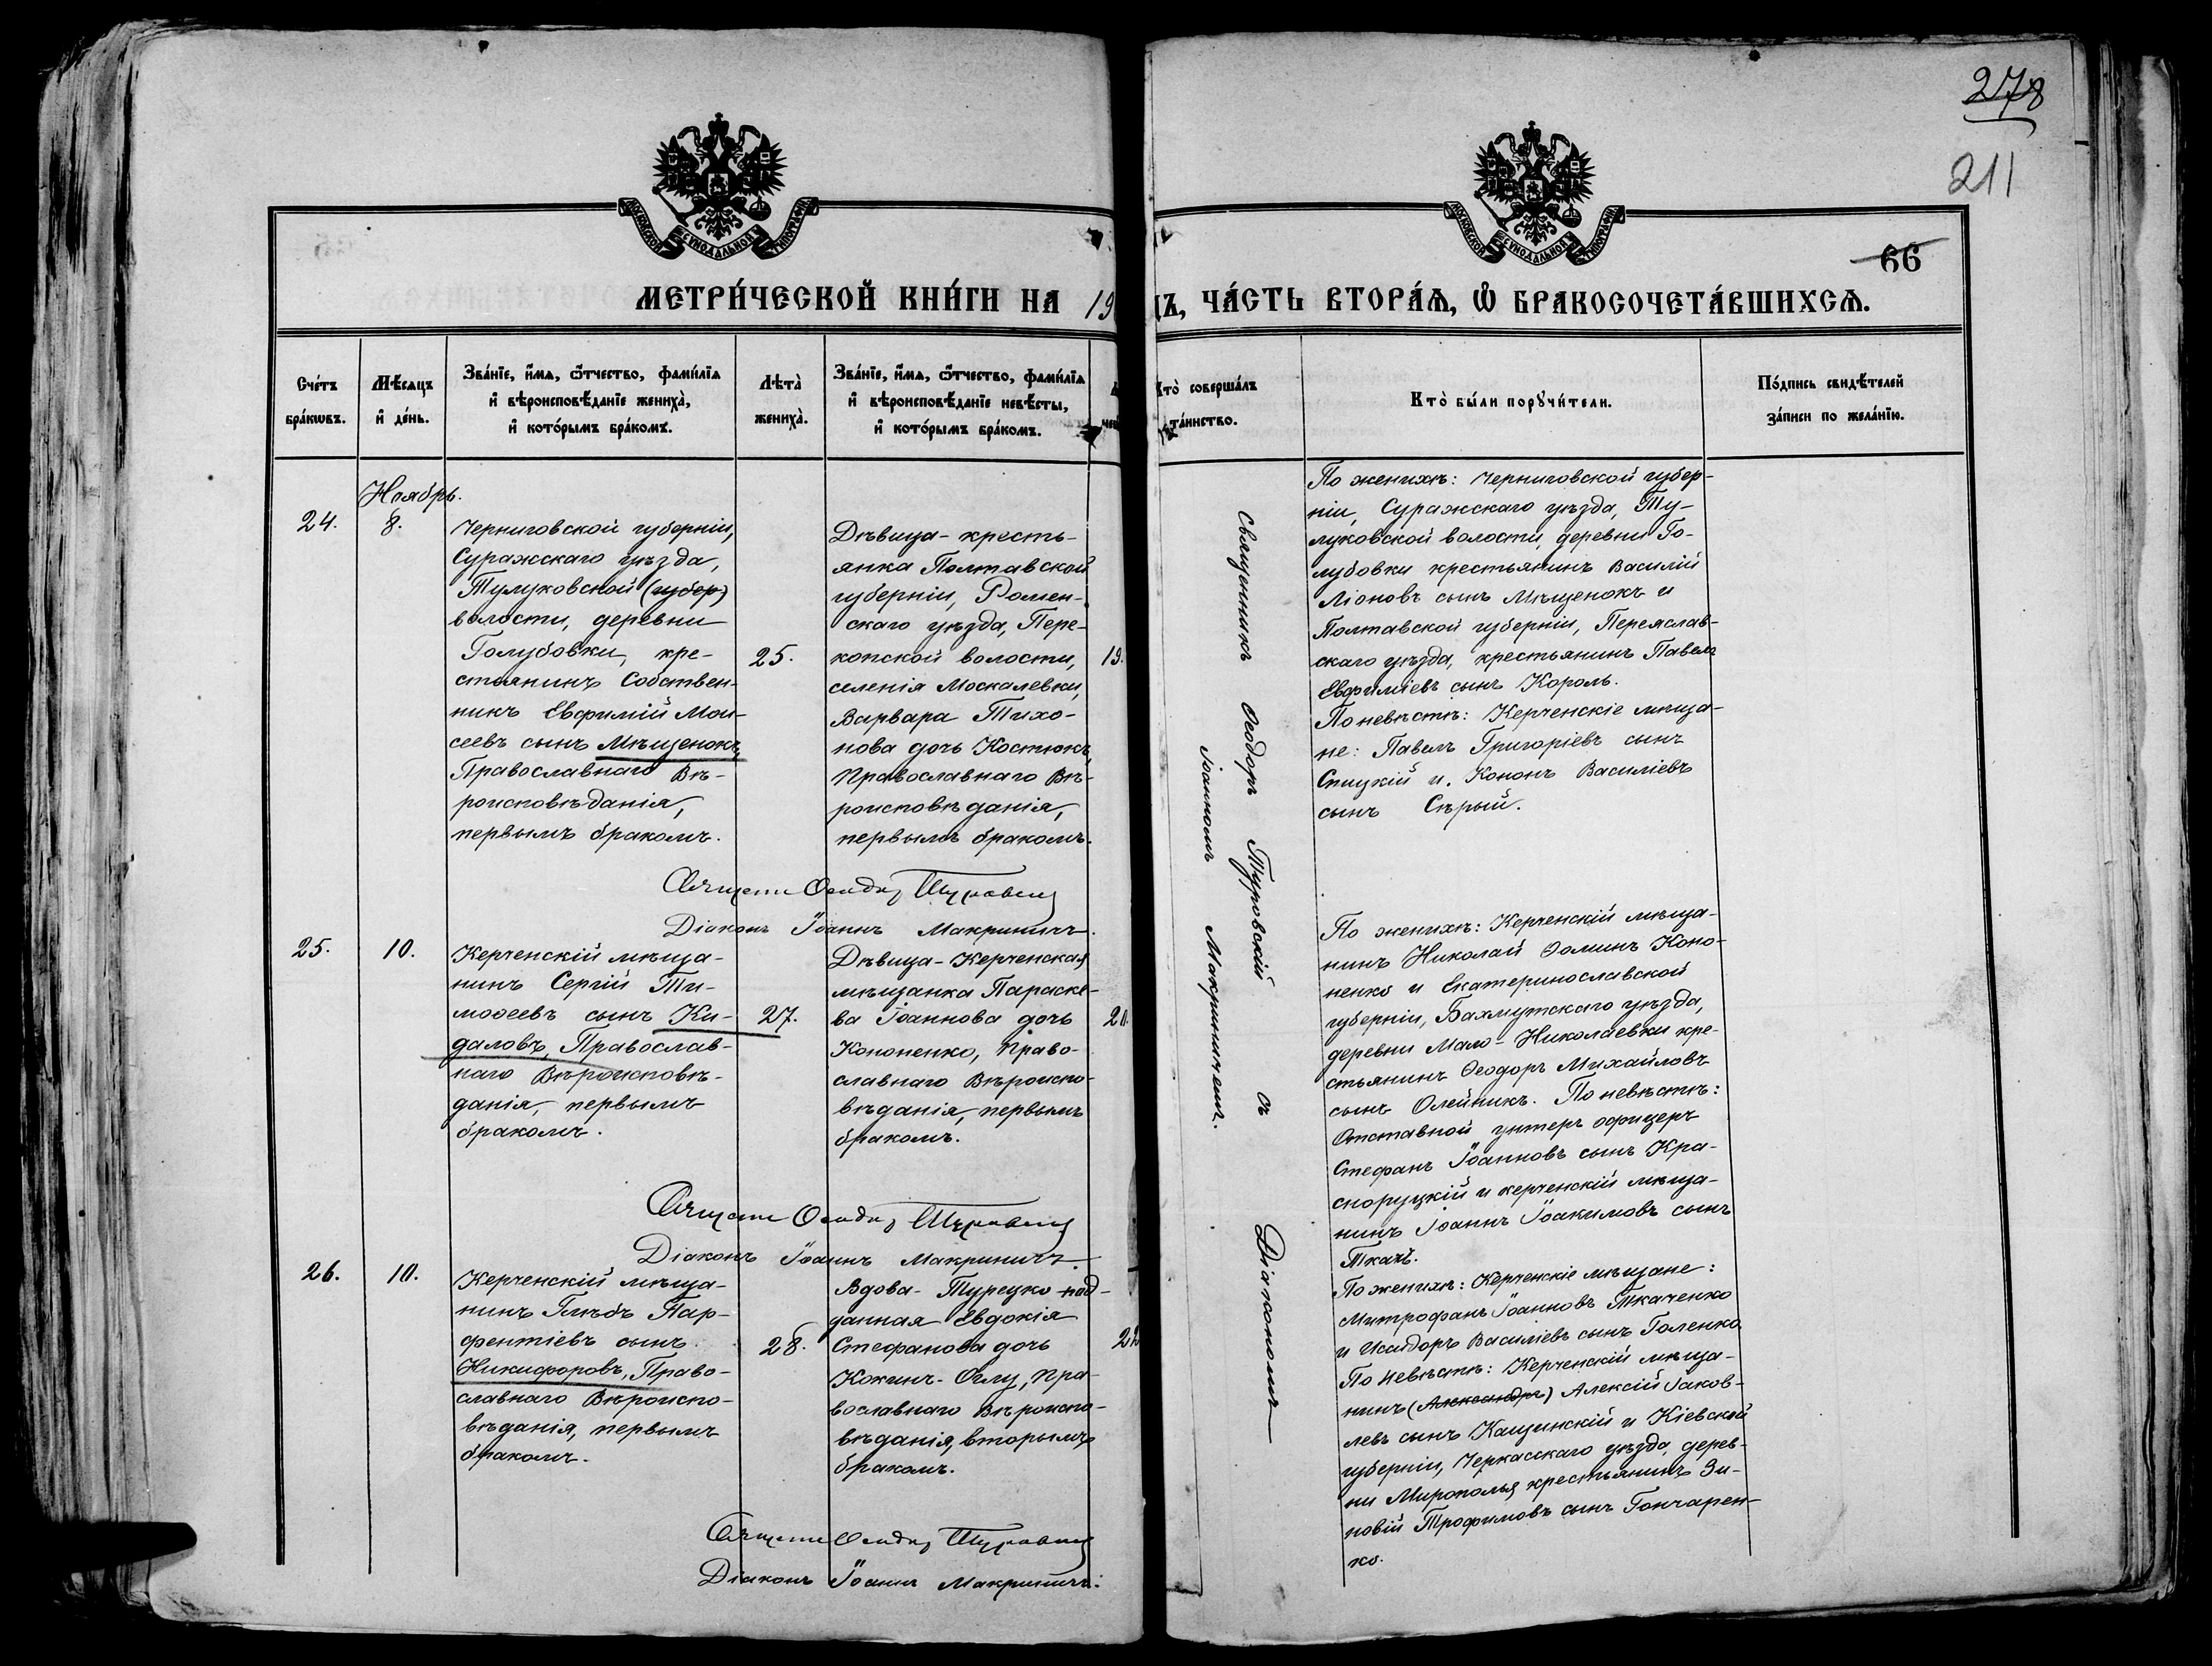 278
211
66
МОСКОВСКОЙ СѴНОДАЛЬНОЙ ТИПОГРАФІИ
МОСКОВСКОЙ СѴНОДАЛЬНОЙ ТИПОГРАФІИ
МЕТРИ́ЧЕСКОЙ КНИ́ГИ НА 19
ЧА́СТЬ ВТОРА́Ѧ, Ѡ БРАКОСОЧЕТА́ВШИХСѦ.
Сче́тъ
бра́кѡвъ.
Мѣ́сѧцъ
и҆ де́нь.
Зва́нїе, и҆́мѧ, ѻ҆́тчество, фами́лїѧ
и҆ вѣроисповѣ́данїе жениха̀,
и҆ кото́рымъ бра́комъ.
Лѣта̀
жениха̀.
Зва́нїе, и҆́мѧ, ѻ҆́тчество, фами́лїѧ
и҆ вѣроисповѣ́данїе невѣ́сты,
и҆ кото́рымъ бра́комъ.
Кто̀ соверша́лъ
та́инство.
Кто̀ бы́ли порꙋчи́тели.
По́дпись свидѣ́телей
за́писи по жела́нїю.
Ноябрь.
24.
8.
Черниговской губерніи,
Суражскаго уѣзда,
Тулуковской (губер)
волости, деревни
Голубовки, кре-
стьянинъ Собствен-
никъ Евфимій Мои-
сеевъ сынъ Мѣщенокъ,
Православнаго Вѣ-
роисповѣданія,
первымъ бракомъ.
25.
Дѣвица - кресть-
янка Полтавской
губерніи, Ромен-
скаго уѣзда, Пере-
копской волости,
селенія Москалевки,
Варвара Тихо-
нова дочь Костюкъ,
Православнаго Вѣ-
роисповѣданія,
первымъ бракомъ.
19.
Діаконъ Іоаннъ Макриничъ.
По женихѣ: Черниговской губер-
ніи, Суражскаго уѣзда, Ту-
луковской волости, деревни Го-
лубовки крестьянинъ Василій
Ліоновъ сынъ Мѣщенокъ и
Полтавской губерніи, Переяслав-
скаго уѣзда, крестьянинъ Павелъ
Евфиміевъ сынъ Король.
По невѣстѣ: Керченскіе мѣща-
не: Павелъ Григоріевъ сынъ
Спицкій и. Кононъ Василіевъ
сынъ Сѣрый.
Священникъ Ѳеодоръ Туровскій съ Діакономъ
Іоанномъ Макриничемъ.
25.
10.
Керченскій мѣща-
нинъ Сергій Ти-
моѳеевъ сынъ Ки-
даловъ, Православ-
наго Вѣроисповѣ-
данія, первымъ
бракомъ.
27.
Дѣвица - Керченская
мѣщанка Параске-
ва Іоаннова дочь
Кононенко, Право-
славнаго Вѣроиспо-
вѣданія, первымъ
бракомъ.
Діаконъ Іоаннъ Макриничъ.
По женихѣ: Керченскій мѣща-
нинъ Николай Ѳоминъ Коно-
ненко и Екатеринославской
губерніи, Бахмутскаго уѣзда,
деревни Мало-Николаевки кре-
стьянинъ Ѳеодоръ Михайловъ
сынъ Олейникъ. По невѣстѣ:
Отставной унтеръ офицеръ
Стефанъ Іоанновъ сынъ Кра-
сноруцкій и керченскій мѣща-
нинъ Іоаннъ Іоакимовъ сынъ
Ткачъ.
26.
10.
Керченскій мѣща-
нинъ Глѣбъ Пар-
фентіевъ сынъ
Никифоровъ, Право-
славнаго Вѣроиспо-
вѣданія, первымъ
бракомъ.
28.
Вдова - Турецко-под-
данная Евдокія
Стефанова дочь
Кокинъ-Оглу, Пра-
вославнаго Вѣроиспо-
вѣданія, вторымъ
бракомъ.
Діаконъ Іоаннъ Макриничъ.
По женихѣ: Керченскіе мѣщане:
Митрофанъ Іоанновъ Ткаченко
и Исидоръ Василіевъ сынъ Голенко.
По невѣстѣ: Керченскій мѣща-
нинъ (Александръ) Алексій Іаков-
левъ сынъ Кащинскій и Кіевской
губерніи, Черкасскаго уѣзда, дерев-
ни Мирополья крестьянинъ Зи-
новій Трофимовъ сынъ Гончарен-
ко.